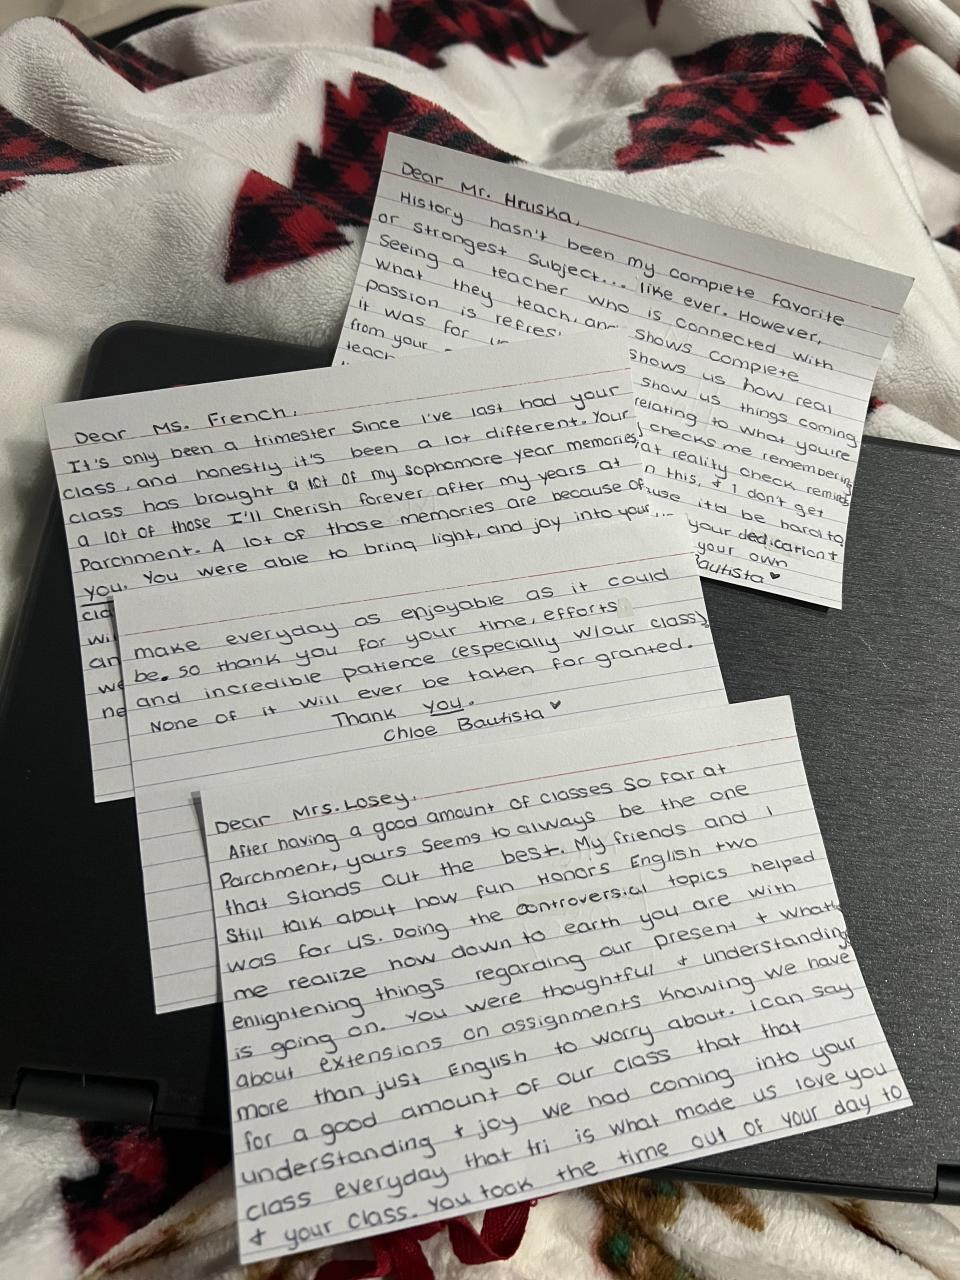 Dear Mr. Hruska,
History hasn't been my complete favorite
or strongest subject... like ever. However,
Seeing a teacher who is connected with
what they teach, and shows complete
passion is refres shows us how real
it was for show us things coming
from your relating to what you're
teach checks me remembering
at reality check remind
n this, & I don't get
use it'd be hard to
your dedication &
your own
Bautista ♥
Dear Ms. French,
It's only been a trimester since I've last had your
class, and honestly it's been a lot different. Your
class has brought a lot of my sophamore year memories,
a lot of those I'll cherish forever after my years at
Parchment. A lot of those memories are because of
you. You were able to bring light, and joy into your
cla
wi
an
we
ne
make everyday as enjoyable as it could
be. So thank you for your time, efforts
and incredible patience (especially w/our class).
None of it will ever be taken for granted.
Thank you.
Chloe Bautista ♥
Dear Mrs. Losey,
After having a good amount of classes so far at
Parchment, yours seems to always be the one
that stands out the best. My friends and I
still talk about how fun Honors English two
was for us. Doing the controversial topics helped
me realize how down to earth you are with
enlightening things regarding our present & what
is going on. You were thoughtful & understanding
about extensions on assignments knowing we have
more than just English to worry about. I can say
for a good amount of our class that that
understanding & joy we had coming into your
class everyday that tri is what made us love you
& your class. You took the time out of your day to